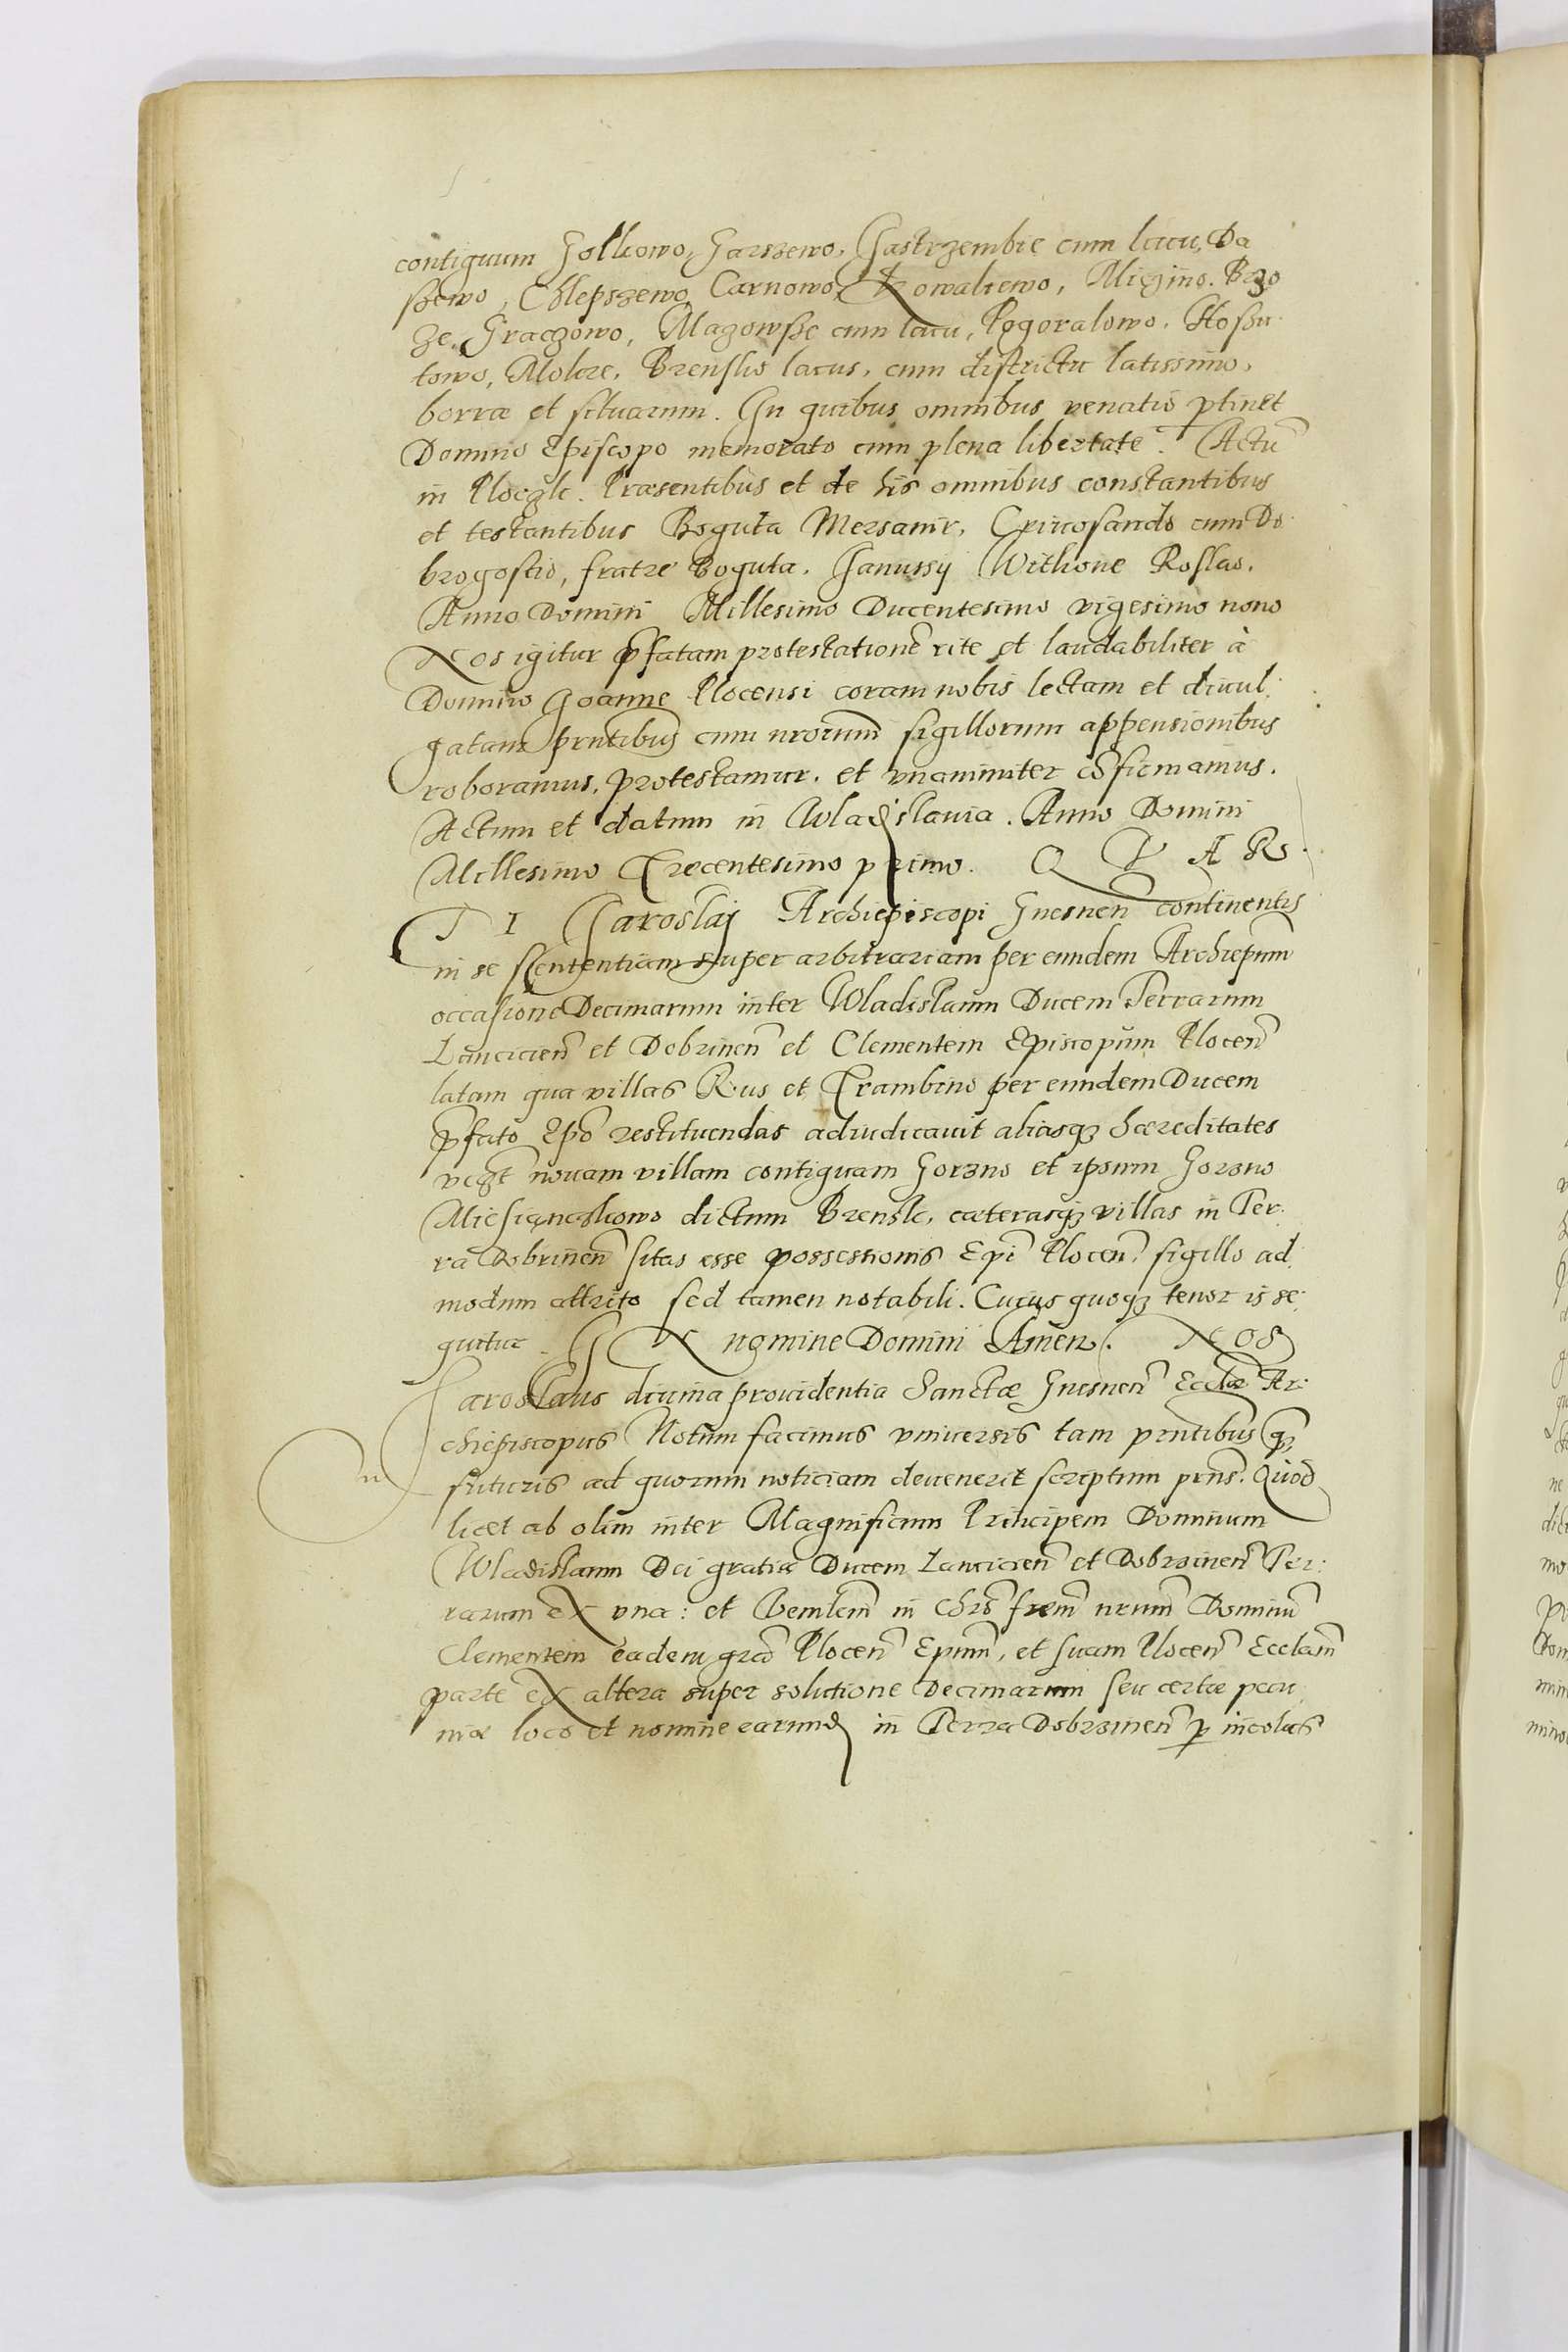 contiguum Golkowo, Garszewo, Jastrzembie cum lacu, Da
ssewo, Chlepszewo, Carnowo, Kowalewo, Miezino. Brzo
ze, Graczowo, Mazowsse cum lacu, Pogoralowo, Kossu
towo, Mokre, Brensko lacus, cum districtu latissimo,
borræ et siluarum. In quibus omnibus venatio ptinet
Domino Episcopo memorato cum plena libertate. Actū
in Ploczk. Præsentibus et de his omnibus constantibus
et testantibus Boguta Mersanir, Criuosando cum Do
brogostio, fratre Boguta. Janussij Withone Roslao.
Anno Domini Millesimo Ducentesimo vigesimo nono
Nos igitur pfatam protestationē rite et laudabiliter à
Domino Joanne Plocensi coram nobis lectam et diuul:
gatam pntibus cum nrorum sigillorum appensionibus
roboramus, protestamur, et vnanimiter cōfirmamus.
Actum et datum in Wladislauia. Anno Domini
Millesimo Trecentesimo primo. Q V A R
T I Jaroslaj Archiepiscopi Gnesnen̄ continentis
in se sententiam super arbitrariam per eundem Archiepum
occasione Decimarum inter Wladislaum Ducem Terrarum
Lancicien̄ et Dobrinen̄ et Clementem Episcopum Plocen̄
latam qua villas Rus et Trambino per eundem Ducem
pfato Epō restituendas adiudicauit aliasqz hæreditates
vczt nouam villam contiguam Gorzno et ipsum Gorzno
Miesiączkowo dictum Brensk, cæterasqz villas in Ter:
ra Dobrinen̄ sitas esse possessionis Epi Plocen̄, sigillo ad
modum attrito sed tamen notabili. Cuius quoqz tenor is se:
quitur. I N nomine Domini Amen. NOS
Jaroslaus diuina prouidentia Sanctæ Gnesnen̄ Ecclæ Ar:
chiepiscopus Notum facimus vniuersis tam pntibus qz
futuris ad quorum noticiam deuenerit scriptum pns. Quod
licet ab olim inter Magnificum Principem Dominum
Wladislaum Dei gratia Ducem Lancicien̄ et Dobrzinen̄ Ter:
rarum ex vna: et Venlem in Chrō frem nrum Dominū
Clementem eadem gra Plocen̄ Epum, et suam Plocen̄ Ecclam
parte ex altera super solutione Decimarum seu certæ pecu
niæ loco et nomine earund in Terra Dobrzinen̄ p incolas